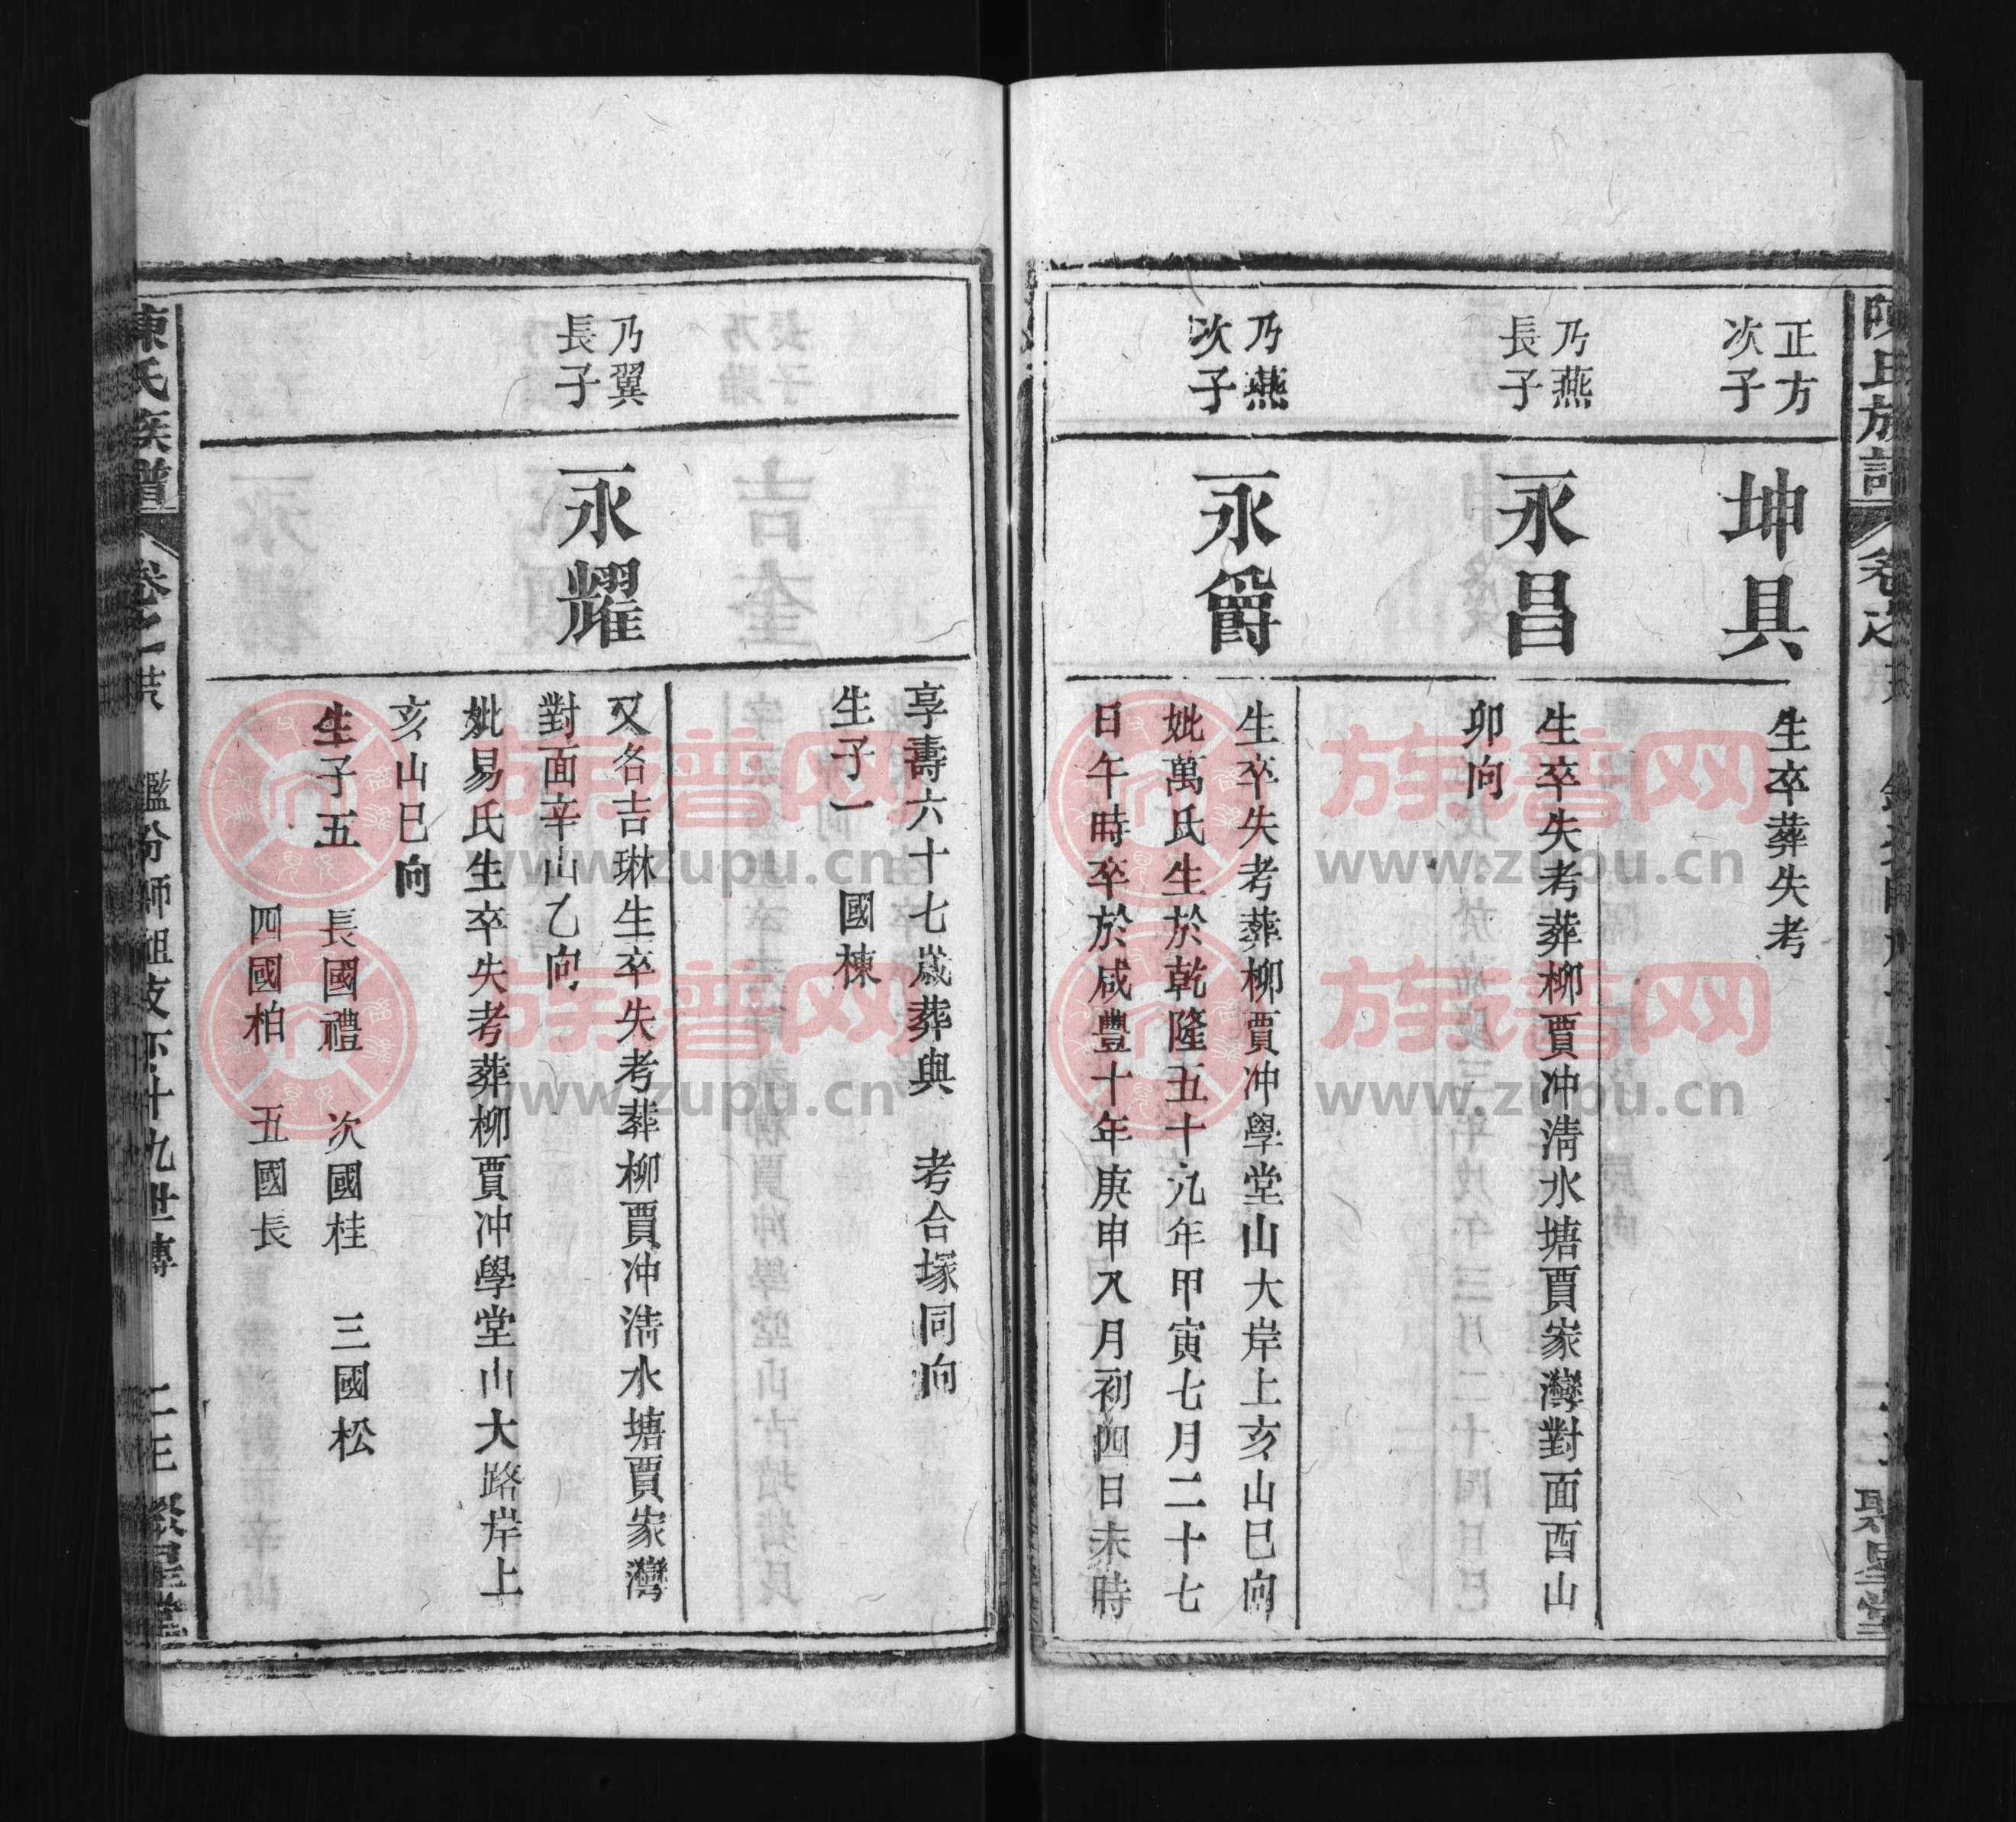 正方
次子
坤具
生卒葬失考
乃燕
長子
永昌
生卒失考葬柳賈冲淸水塘賈家灣對面酉山
卯向
乃燕
次子
永爵
生卒失考葬柳賈冲學堂山大岸上亥山巳向
妣萬氏生於乾隆五十九年甲寅七月二十七
日午時卒於咸豐十年庚申八月初四日未時
享壽六十七歲葬與 考合塚同向
生子一 國棟
乃翼
長子
永耀
又名吉琳生卒失考葬柳賈冲淸水塘賈家灣
對面辛山乙向
妣易氏生卒失考葬柳賈冲學堂山大路岸上
亥山巳向
生子五 長國禮 次國桂 三國松
四國柏 五國長
陳氏族譜 卷之 聚星堂
陳氏族譜 卷之一 鑑份師祖支 十九世傳 聚星堂
族谱网
www.zupu.cn
族谱网
www.zupu.cn
族谱网
www.zupu.cn
族谱网
www.zupu.cn